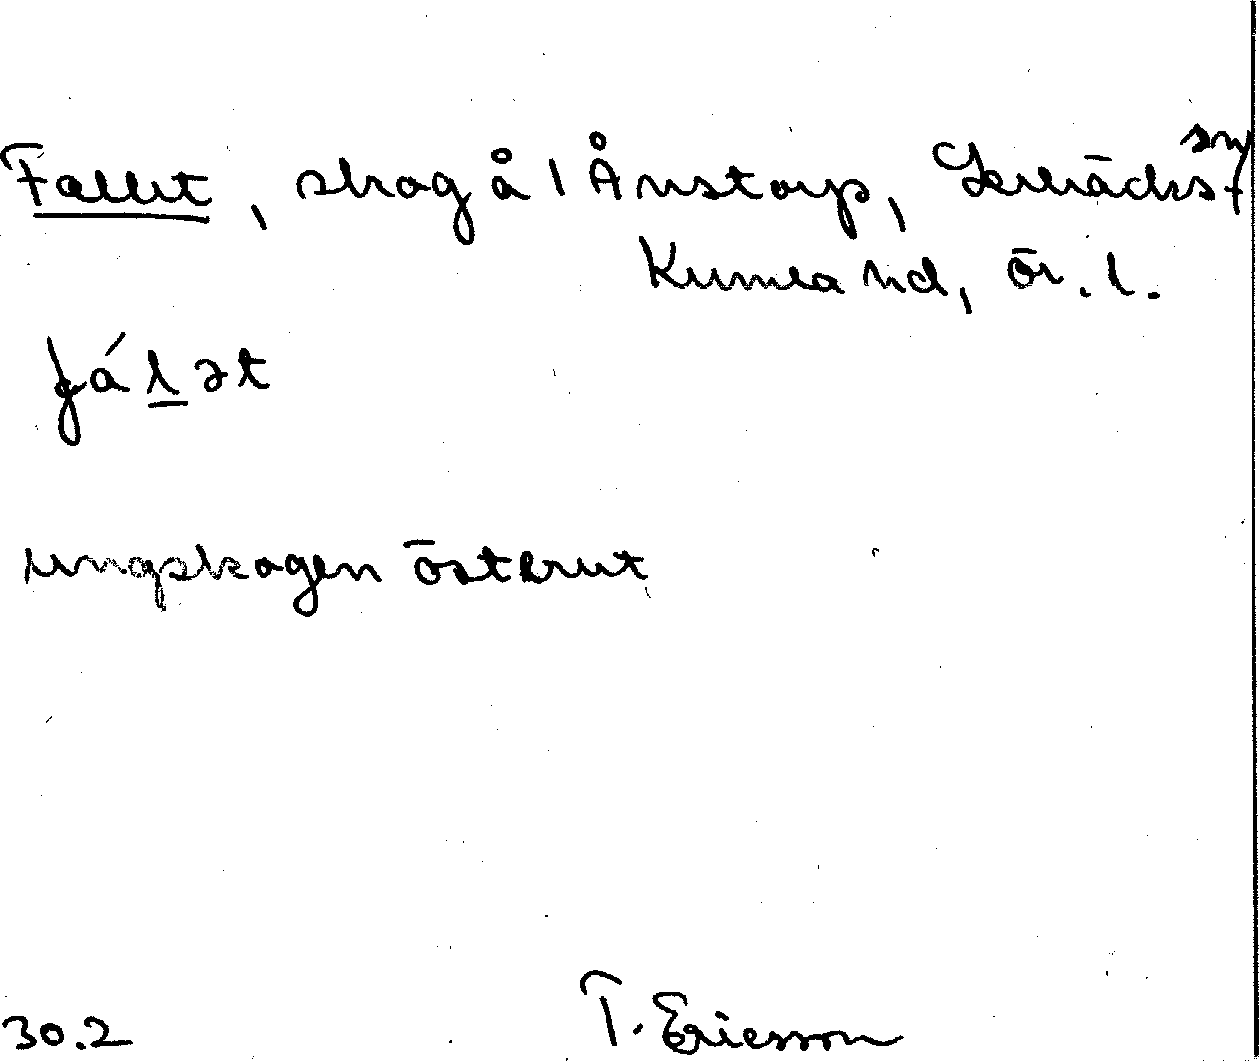 Fallet, skog å 1 Ånstorp, Lerbäcks sn,
Kumla hd, ör. l.
fálət
ungskogen österut
30.2 T. Ericsson